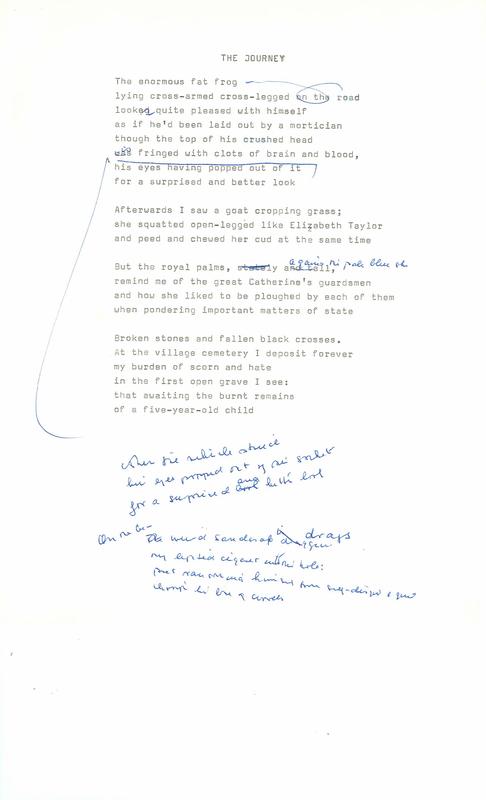 THE JOURNEY
The enormous fat frog
lying cross-armed cross-legged on the road
looked quite pleased with himself
as if he'd been laid out by a mortician
though the top of his crushed head
was fringed with clots of brain and blood,
his eyes having popped out of it
for a surprised and better look
Afterwards I saw a goat cropping grass;
she squatted open-legged like Elizabeth Taylor
and peed and chewed her cud at the same time
against the pale blue sky
But the royal palms, stately and tall,
remind me of the great Catherine's guardsmen
and how she liked to be ploughed by each of them
when pondering important matters of state
Broken stones and fallen black crosses.
At the village cemetery I deposit forever
my burden of scorn and hate
in the first open grave I see:
that awaiting the burnt remains
of a five-year-old child
when the vehicle struck
his eyes popped out of their socket
for a surprised and better look
drags
my cigar hole: